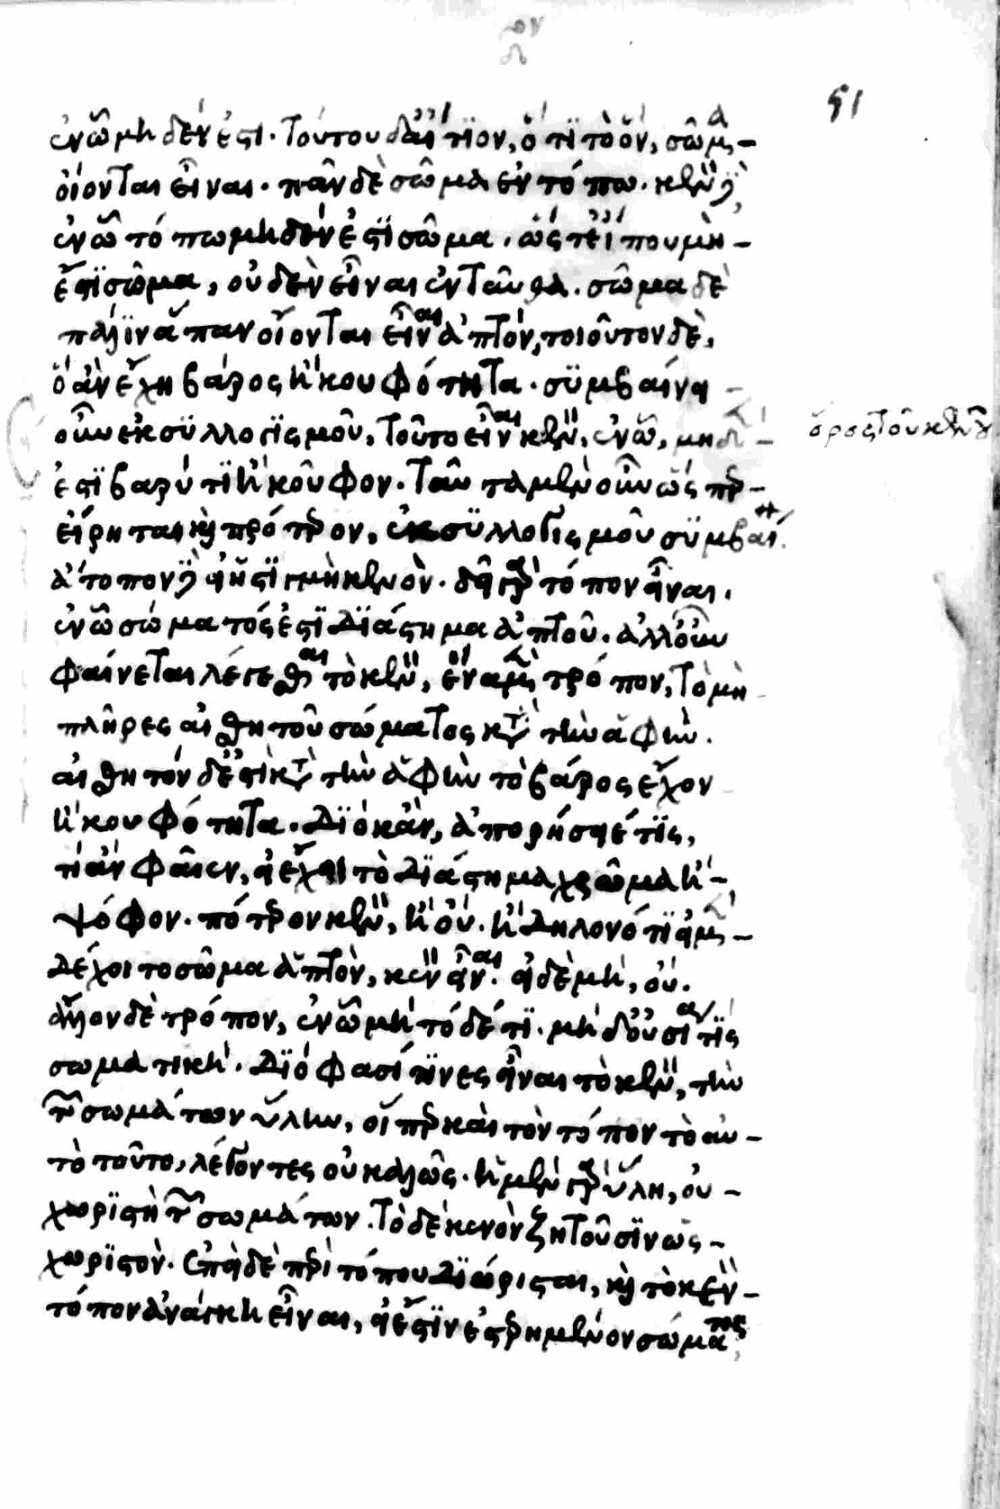 51
ἐν ᾧ μηδέν ἐστι. Τούτου δ' αἴτιον, ὅτι τὸ ὄν, σῶμα
οἴονται εἶναι. πᾶν δὲ σῶμα ἐν τόπω. κενὸν δὲ
ἐν ᾧ τόπω μηδέν ἐστι σῶμα. ὥστ' εἴ που μὴ
ἔστι σῶμα, οὐδὲν εἶναι ἐνταῦθα. σῶμα δὲ
πάλιν ἅπαν οἴονται εἶναι ἁπτόν, τοιοῦτον δὲ,
ὃ ἂν ἔχη βάρος ἢ κουφότητα. συμβαίνει
οὖν ἐκ συλλογισμοῦ, τοῦτο εἶναι κενὸν, ἐν ᾧ, μηδέν
ὅρος τοῦ κενοῦ
ἐστι βαρύ τι ἢ κοῦφον. Ταῦτα μὲν οὖν ὥσπερ
εἴρηται καὶ πρότερον, ἐκ συλλογισμοῦ συμβαίνει.
ἄτοπον δὲ εἰ ἡ στιγμὴ κενὸν. δεῖ γὰρ τόπον εἶναι,
ἐν ᾧ σώματός ἐστι διάστημα ἁπτοῦ. ἀλλ' οὖν
φαίνεται λέγεσθαι τὸ κενὸν, ἕνα μὲν τρόπον, τὸ μὴ
πλῆρες αἰσθητοῦ σώματος κατὰ τὴν ἁφήν.
αἰσθητὸν δέ ἐστι κατὰ τὴν ἁφὴν τὸ βάρος ἔχον
ἢ κουφότητα. Διὸ κἂν, ἀπορήσειέ τις,
τί ἂν φαῖεν, εἰ ἔχει τὸ διάστημα χρῶμα ἢ
ψόφον. πότερον κενὸν, ἢ οὔ. ἢ δῆλον ὅτι εἰ μὲν
δέχοιτο σῶμα ἁπτὸν, κενὸν εἶναι. εἰ δὲ μή, οὔ.
ἄλλον δὲ τρόπον, ἐν ᾧ μὴ τόδε τι. μηδ' οὐσία τις
σωματική. Διό φασί τινες εἶναι τὸ κενὸν, τὴν
τῶν σωμάτων ὕλην, οἵπερ καὶ τὸν τόπον τὸ αὐ-
τὸ τοῦτο, λέγοντες οὐ καλῶς. ἡ μὲν γὰρ ὕλη, οὐ
χωριστὴ τῶν σωμάτων. Τὸ δὲ κενὸν ζητοῦσιν ὡς
χωριστὸν. Ἐπεὶ δὲ περὶ τόπου διώρισται, καὶ τὸ κενὸν
τόπον ἀνάγκη εἶναι, εἰ ἔστιν ἐστερημένον σώματος,